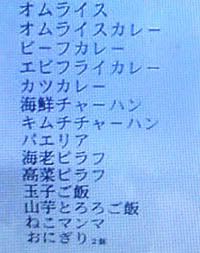 オムライス
オムライスカレー
ビーフカレー
エビフライカレー
カツカレー
海鮮チャーハン
キムチチャーハン
パエリア
海老ピラフ
高菜ピラフ
玉子ご飯
山芋とろろご飯
ねこマンマ
おにぎり2個